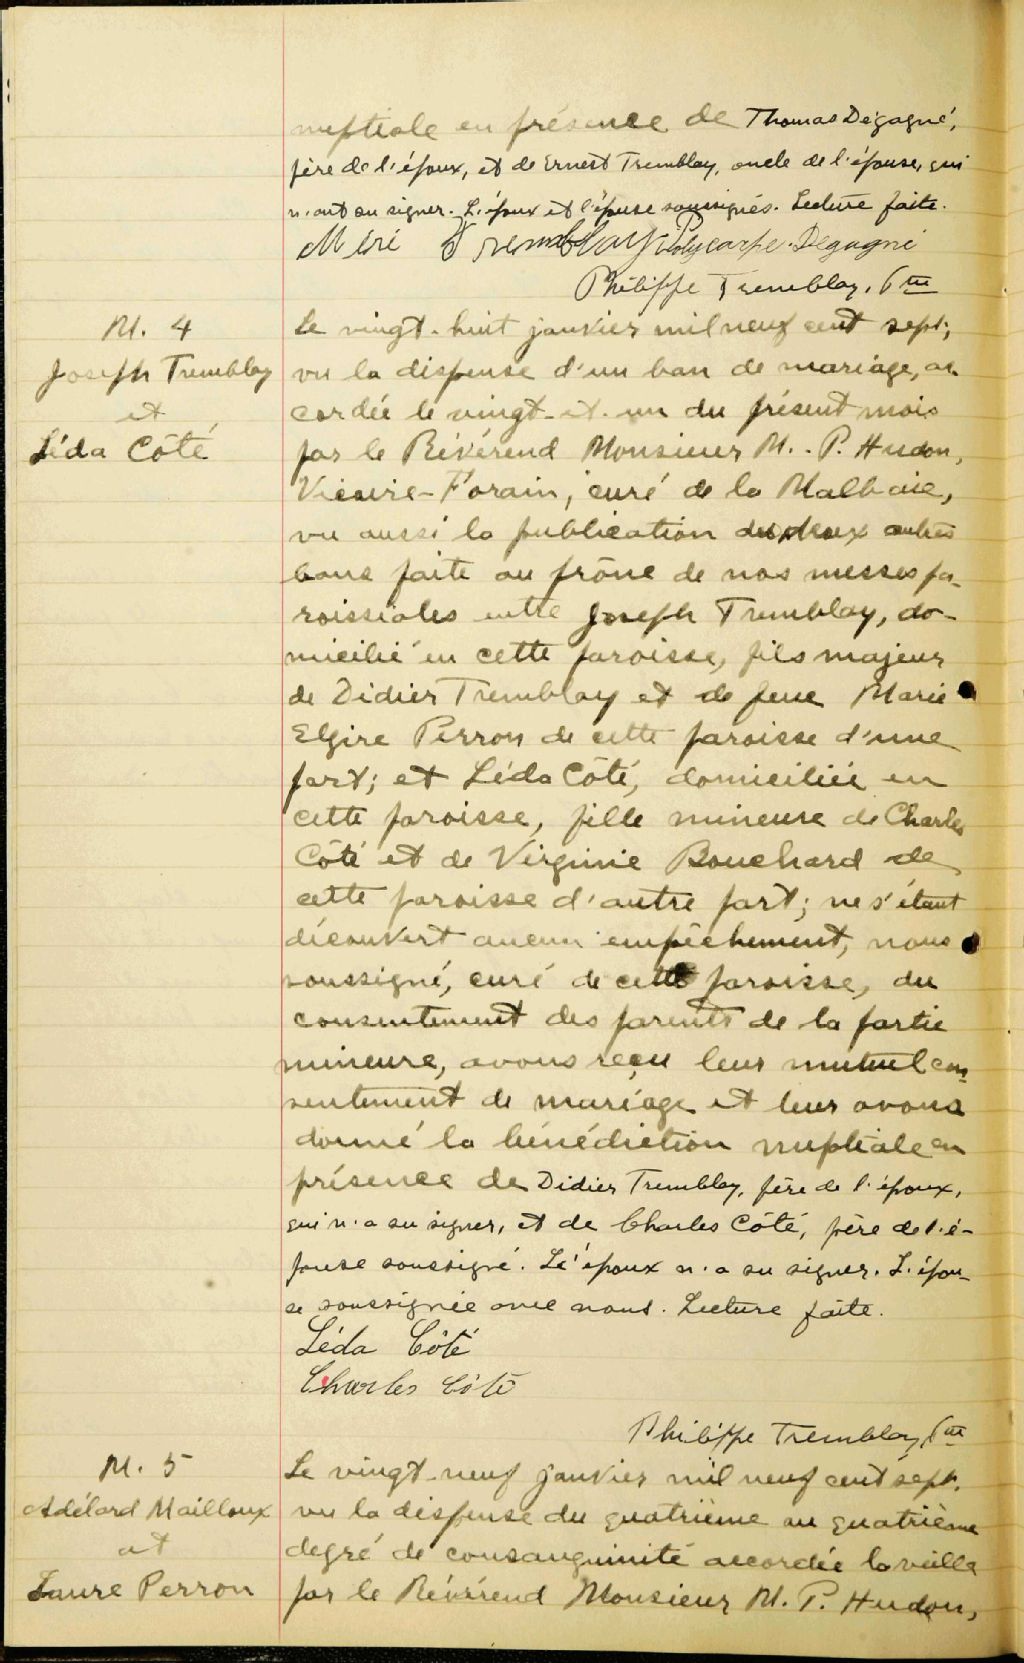 nuptiale en présence de Thomas Dégagné,
père de l'époux, et de Ernest Tremblay, oncle de l'épouse, qui
n'ont su signer. L'époux et l'épouse soussignés. Lecture faite.
Méri Tremblay Polycarpe Dégagné
Philippe Tremblay, Ptre
M. 4
Joseph Tremblay
et
Léda Côté
Le vingt-huit janvier mil neuf cent sept,
vu la dispense d'un ban de mariage, ac
cordée le vingt-et-un du présent mois
par le Révérend Monsieur M. P. Hudon,
Vicaire-Forain, curé de la Malbaie,
vu aussi la publication des deux autres
bans faite au prône de nos messes pa-
roissiales entre Joseph Tremblay, do-
micilié en cette paroisse, fils majeur
de Didier Tremblay et de feue Marie
Elzire Perron de cette paroisse d'une
part; et Léda Côté, domiciliée en
cette paroisse, fille mineure de Charles
Côté et de Virginie Bouchard de
cette paroisse d'autre part; ne s'étant
découvert aucun empêchement, nous
soussigné, curé de cette paroisse, du
consentement des parents de la partie
mineure, avons reçu leur mutuel con-
sentement de mariage et leur avons
donné la bénédiction nuptiale en
présence de Didier Tremblay, père de l'époux,
qui n'a su signer, et de Charles Côté, père de l'é-
pouse soussigné. Lé'époux n'a su signer. L'épou-
se soussignée avec nous. Lecture faite.
Léda Côté
Charles Côté
Philippe Tremblay, Ptre
M. 5
Adélard Mailloux
et
Laure Perron
Le vingt-neuf janvier mil neuf cent sept,
vu la dispense du quatrième au quatrième
degré de consanguinité accordée la veille
par le Révérend Monsieur M. P. Hudon,